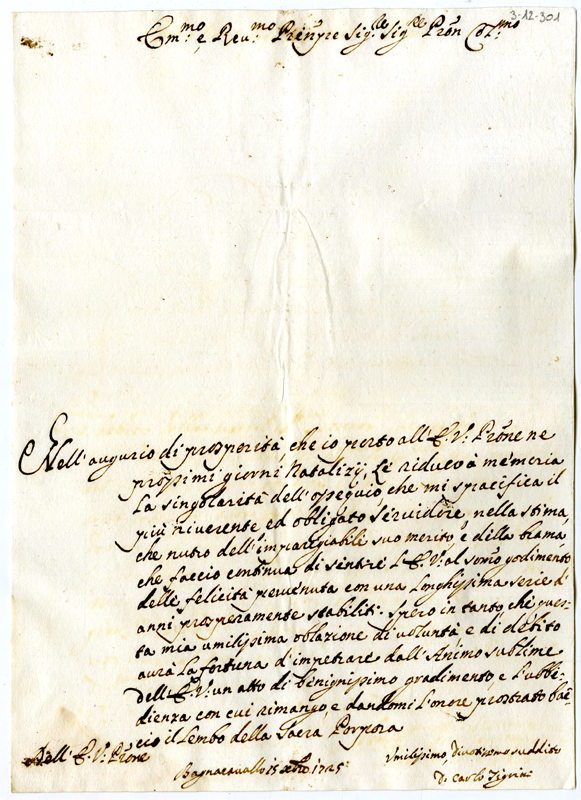 3-12-301
Em.mo e Reu.mo Prñpe Sig.re Sig.re Prõn Col.mo
Nell'augurio di prosperità che io porto all'E.V. Prõne ne
prossimi giorni Natalizij, Le riduco à memoria
La singolarità dell'ossequio che mi specifica il
più riverente ed obligato servidore nella stima,
che nutro dell'impareggiabile suo merito, e della brama
che faccio continua di sentire L'E.V. al godimento
delle felicità pervenuta con una Longhissima serie d'
anni prosperamente stabiliti. Spero in tanto che ques-
ta mia umilissima oblazione di volontà e di debito
aurà La fortuna d'impetrare dall'Animo sublime
dell'E.V. un atto di benignissimo gradimento, e L'ubbe-
dienza con cui rimango, e dandomi L'onore prostrato bac-
cio il Lembo della Sacra Porpora
Dell'E.V. Prõne
Bagnacavallo 15 Xbre 1725
Umilissimo, Divotissimo suddito
D. Carlo